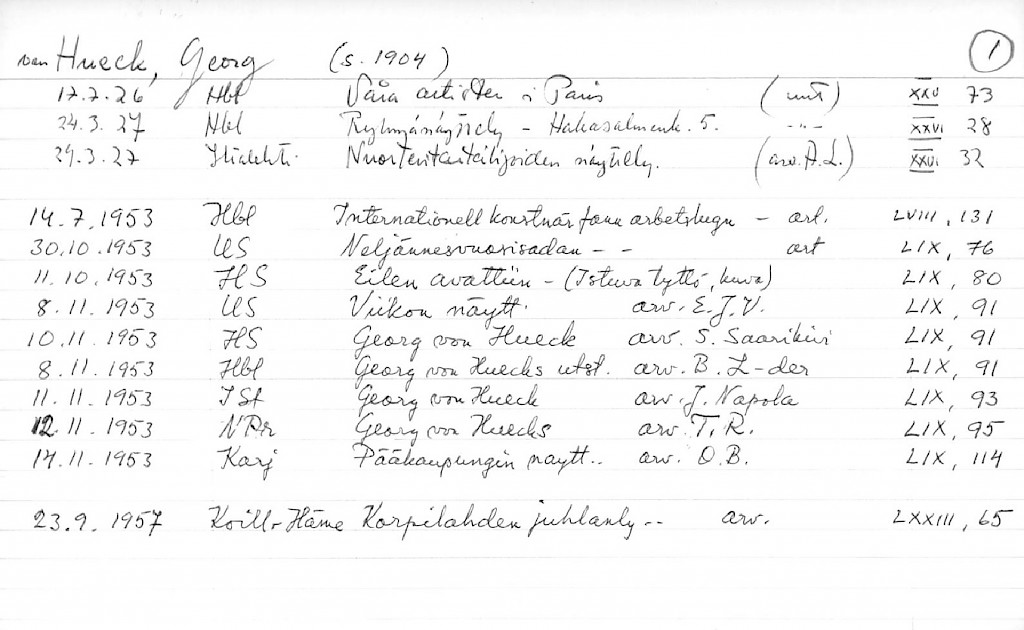 von Hueck, Georg (s. 1904) 1
17.7.26 Hbl Våra artister i Paris (mt) XXV 73
24.3.27 Hbl Ryhmänäyttely - Hakasalmenk. 5. -"- XXVI 28
29.3.27 Iltalehti Nuorten taiteilijoiden näyttely. (arv. A.L.) XXVI 32
14.7.1953 Hbl Internationell konstnär fann arbetslugn - art. LVIII, 131
30.10.1953 US Neljännesvuosisadan - - art LIX, 76
11.10.1953 HS Eilen avattiin - (Istuva tyttö, kuva) LIX, 80
8.11.1953 US Viikon näytt. arv. E.J.V. LIX, 91
10.11.1953 HS Georg von Hueck arv. S. Saarikivi LIX, 91
8.11.1953 Hbl Georg von Huecks utst. arv. B. L-der LIX, 91
11.11.1953 ISt Georg von Hueck arv. J. Napola LIX, 93
12.11.1953 NPr Georg von Huecks arv. T.R. LIX, 95
14.11.1953 Karj Pääkaupungin näytt.. arv. O.B. LIX, 114
23.9.1957 Koill-Häme Korpilahden juhlanly -- arv. LXXIII, 65